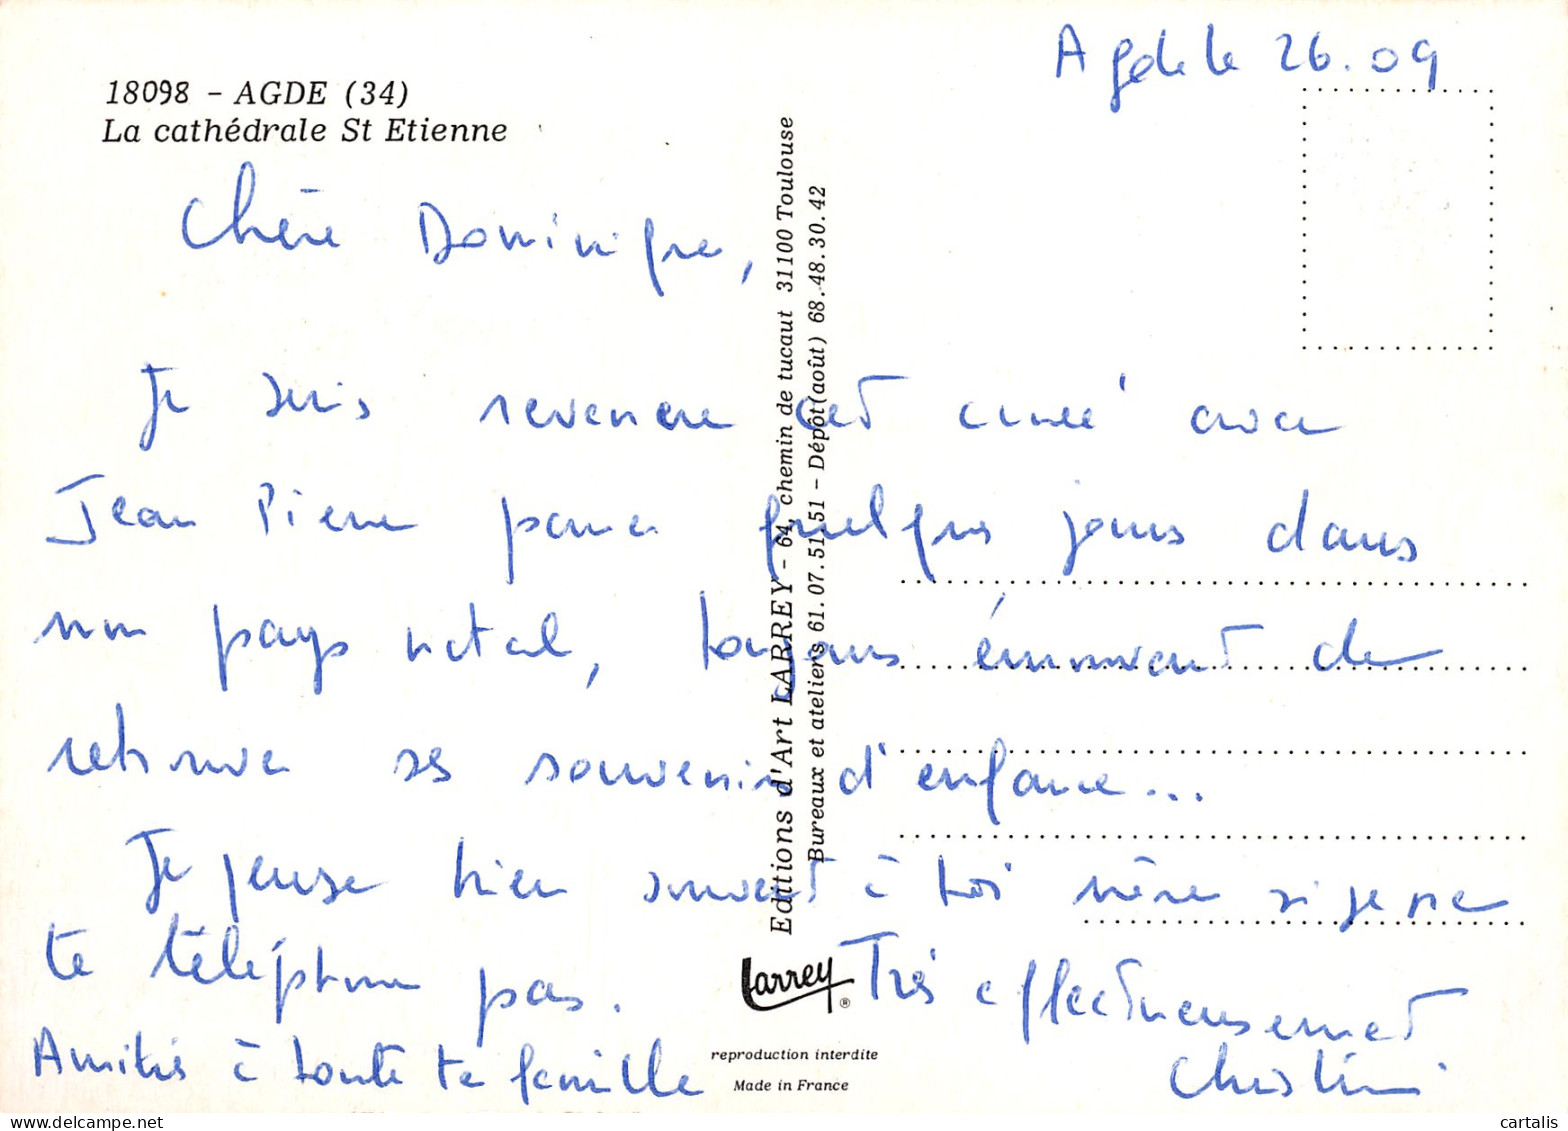 Agde le 26.09
18098 - AGDE (34)
La cathédrale St Etienne
Chère Dominique,
Je suis revenue cet année avec
Jean Pierre passer quelques jours dans
mon pays natal, toujours émouvant de
retrouver ses souvenirs d'enfance...
Je pense bien souvent à toi même si je ne
te téléphone pas.
Très affectueusement
Amitiés à toute ta famille
Christine
Editions d'Art LARREY - 64, chemin de tucaut 31100 Toulouse
Bureaux et ateliers 61.07.51.51 - Dépôt (août) 68.48.30.42
Larrey ®
reproduction interdite
Made in France
cartalis